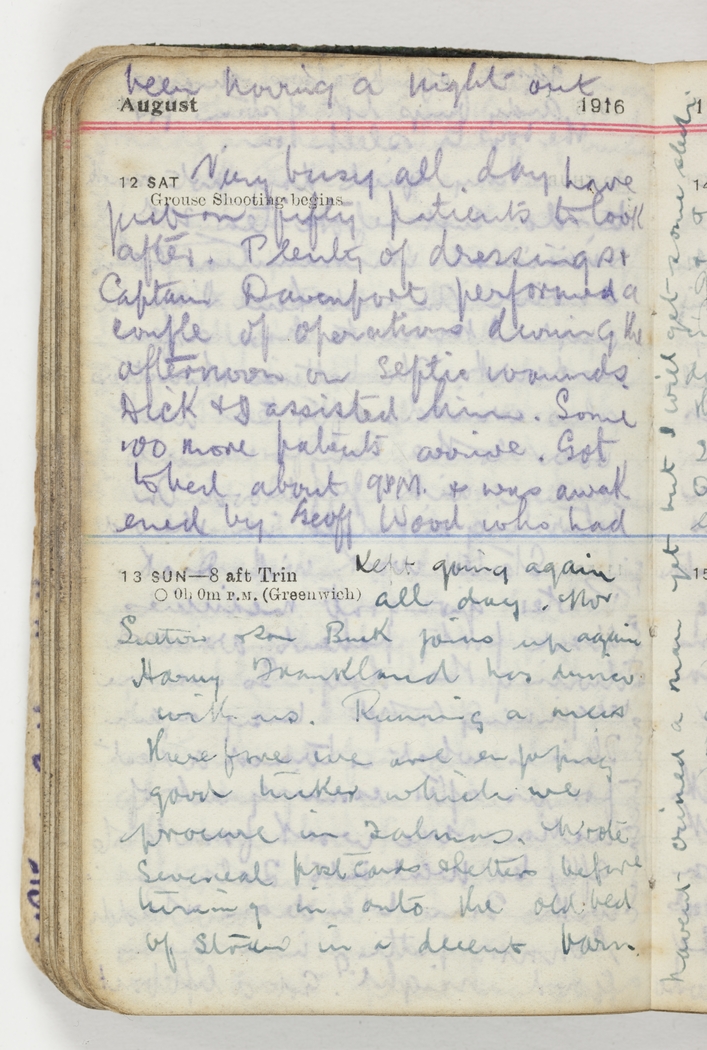 been having a night out
August 1916
12 SAT Very busy all day have
Grouse Shooting begins
just on fifty patients to look
after. Plenty of dressings &
Captain Davenport performed a
couple of operations during the
afternoon on septic wounds
Dick & I assisted him. Some
100 more patients arrive. Got
to bed about 9 P.M. & was awak
ened by Geoff Wood who had
13 SUN—8 aft Trin Kept going again
0h 0m P.M. (Greenwich) all day.
son Buck joins up again
Harry Frankland has
with us. Running a mess
therefore we are enjoying
good tucker which we
procure in Talmas. Wrote
several post cards & letters before
turning in onto the old bed
of straw in a decent barn.
Havent crimed a man yet but I will get some
14
15